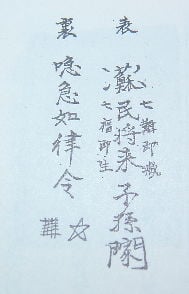 表
蘇民将来子孫門
七難即滅
七福即生
裏
急如律令
☆